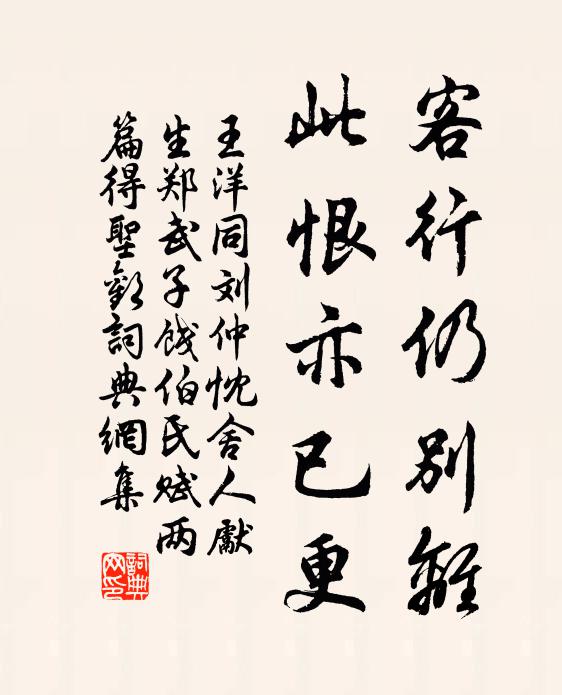 客行仍别離
此恨亦已更
王洋同刘仲忱舍人獻
生郑武子餞伯氏赋两
篇得聖歡詞典網集
詞典
网印